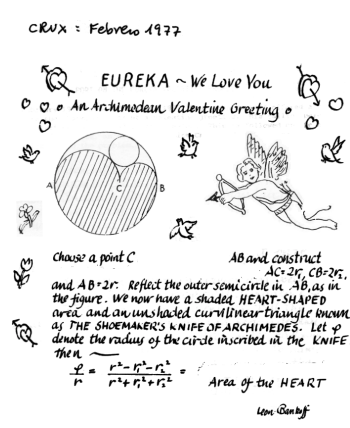 CRUX = Febrero 1977
EUREKA ~ We Love You
An Archimedean Valentine Greeting
A
C
B
Choose a point C AB and construct
AC=2r₁, CB=2r₂,
and AB=2r. Reflect the outer semicircle in AB, as in
the figure. We now have a shaded HEART-SHAPED
area and an unshaded curvilinear triangle known
as THE SHOEMAKER'S KNIFE OF ARCHIMEDES. Let ρ
denote the radius of the circle inscribed in the KNIFE
then —
ρ/r = (r²-r₁²-r₂²)/(r²+r₁²+r₂²) =
Area of the HEART
Leon Bankoff